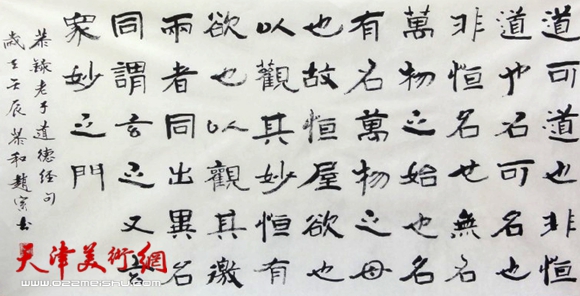 道可道也非恒
道也名可名也
非恒名也無名
萬物之始也名
有名萬物之母
也故恒屋欲也
以觀其妙恒有
欲也以觀其徼
兩者同出異名
同謂玄之又玄
眾妙之門
恭錄老子道德經句
歲在壬辰 恭和趙書
天津美術網
www.022meishu.com